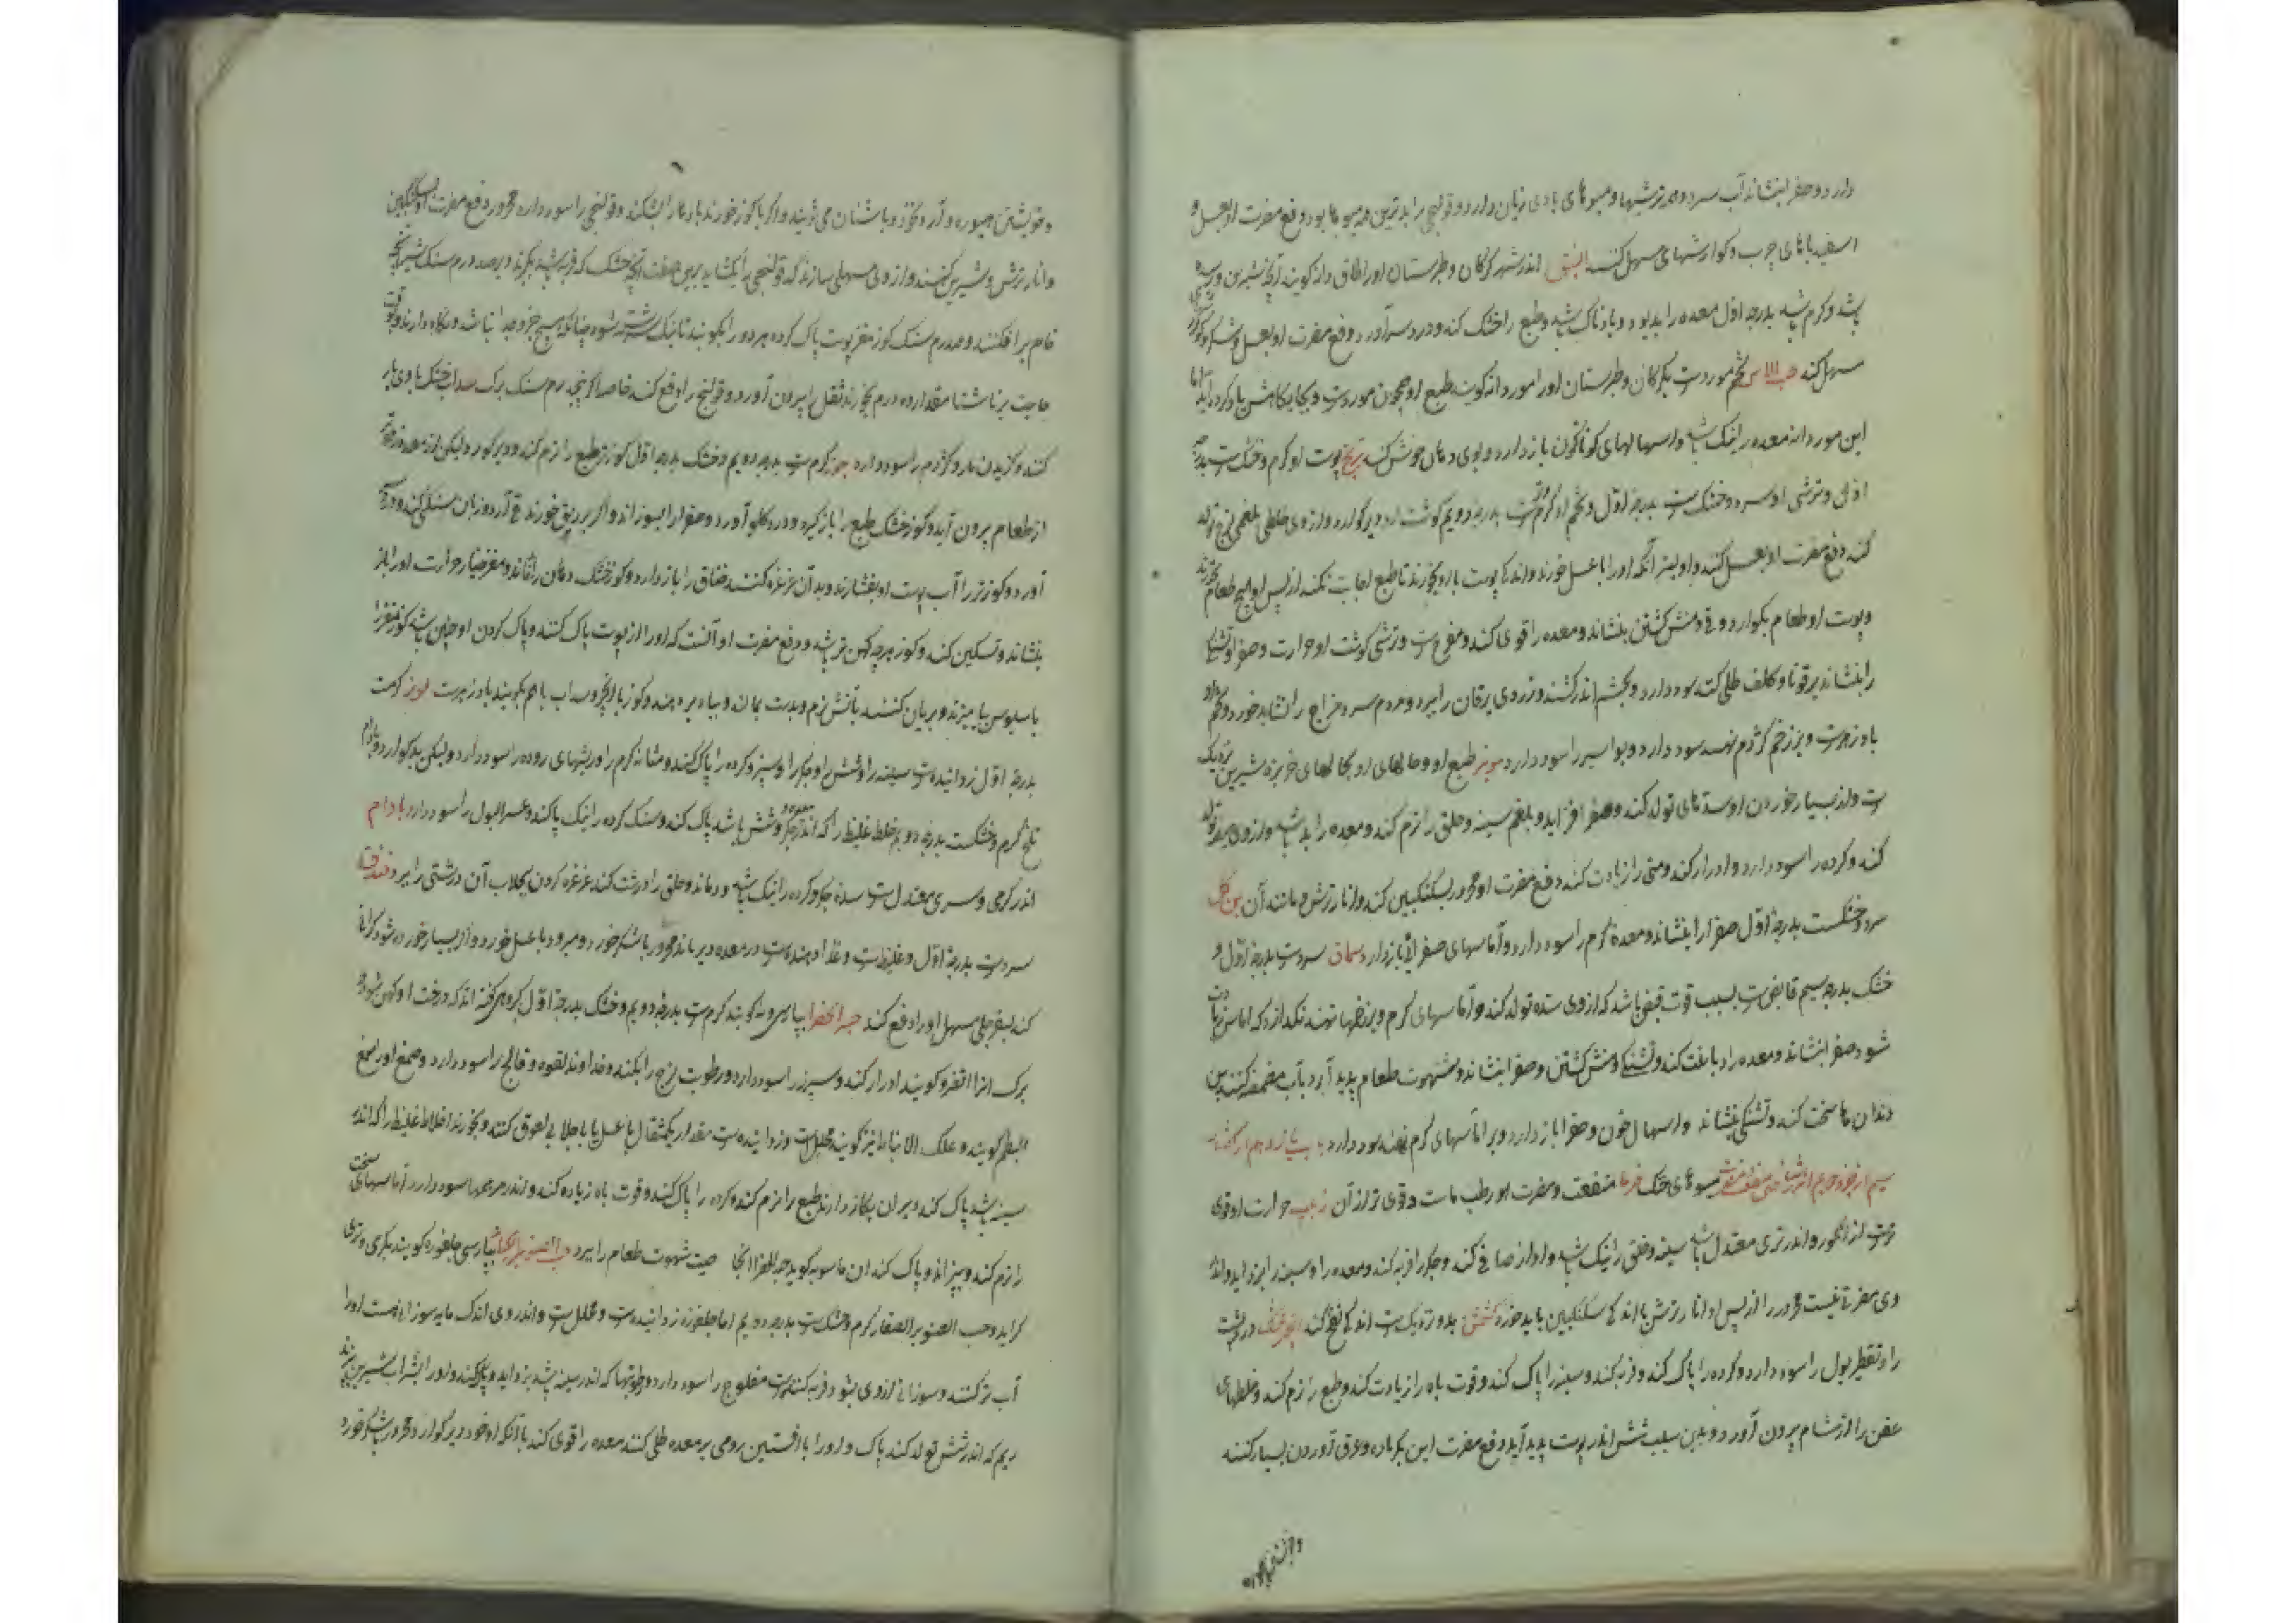 دارد و صفرا بنشاند آب سرد و همه ترشیها و میوهای بادی زیان دارد و قولنجی را بدترین همه میوها بود و دفع مضرت او بعسل و
اسفیدباهای چرب و کوارشهای مسهل کنند النبق اندر شهر کرکان و طبرستان اورا طاق دانه کویند آنچ شیرین و رسیده
باشد و کرم باشد بدرجه اول معده را بد بود و بادناک باشد و طبع را خشک کند و درد سر آورد و دفع مضرت او بعسل و شکر و
مسهل کند حب الاس تخم موردست بکرکان و طبرستان اورا موردانه کویند طبع او همچون موردست و بجایکاهش یاد کرده آید اما
این موردانه معده را نیک باشد و اسهالهای کوناکون باز دارد و بوی دهان خوش کند ترنج پوست او کرم و خشکست بدرجه
اول و ترشی او سرد و خشکست بدرجه اول و تخم او کرم و ترست بدرجه دویم کوشت او دیر کوارد و از وی خلطی بلغمی لزج تولد
کند دفع مضرت او بعسل کنند و اولیتر آنکه اورا با عسل خورند و اندکی پوست با او بخورند تا طبع اجابت نکند از پس او هیچ طعام نخورند
و پوست او طعام بکوارد و قی و منش کشتن بنشاند و معده را قوی کند و مفرح ست و ترشی کوشت او حرارت و صفرا و تشنکی
را بنشاند بر قوبا و کلف طلی کنند سود دارد و بچشم اندر کشند و زردی یرقان را ببرد و مردم سرد مزاج را نشاید خورد و تخم او
بادزهرست و بر زخم کژدم نهند سود دارد و بواسیر را سود دارد موز طبع او و حالهای او بحالهای خربزه شیرین نزدیک
ست و از بسیار خوردن او سدهای تولد کند و صفرا افزاید و بلغم سینه و حلق را نرم کند و معده را بد باشد و از وی صفرا تولد
کند و کرده را سود دارد و ادرار کند و منی را زیادت کند دفع مضرت او محرور بسکنکبین کند و انار ترش و مانند آن
سرد و خشکست بدرجه اول صفرا را بنشاند و معده کرم را سود دارد و آماسهای صفرائی باز دارد سماق سردست بدرجه اول و
خشک بدرجه سیم قابض ست بسبب قوت قبض باشد که از وی سده تولد کند و آماسهای کرم و بر زخمها نهند نکذارد که اماس زیادت
شود صفرا بنشاند و معده را دباغت کند و تشنکی و منش کشتن و صفرا بنشاند و شهوت طعام پدید آرد بآب مضمضه کنند بن
دندان ها سخت کند و تشنکی بنشاند و اسهال خون و صفرا باز دارد و بر اماسهای کرم نهند سود دارد باب یازدهم از کفتار
سیم از جزو دویم اندر شناختن منفعت و مضرت میوهای خشک خرما منفعت و مضرت او رطب ماست و قوی تر از آن زبیب حرارت او قوی
ترست از انکور و اندر تری معتدل باشد سینه و حلق را نیک باشد و آواز صافی کند و جکر را فربه کند و معده را و سینه را بزداید و اندر
وی مضرتی نیست محرور را از پس او انار ترش یا اندکی سکنکبین باید خورد کشمش بدو نزدیک ست اندکی نفخ کند انجیر خشک درد پشت
را و تقطیر بول را سود دارد و کرده را پاک کند و فربه کند و سینه را پاک کند و قوت باه را زیادت کند و طبع را نرم کند و خلطهای
عفن را از مسام بیرون آورد و بدین سبب شپش اندر پوست پدید آید دفع مضرت این بکرمابه و عرق آوردن بسیار کنند
و خویشتن
و خویشتن همیشوره و آرد نخود و باشنان می شویند و اکر با کوز خورند بادها را بشکند و قولنجی را سود دارد محرور دفع مضرت او بسکنکبین
و انار ترش و شیرین کنند و از وی مسهلی سازند که قولنجی را بکشاید برین صفت انجیر خشک که فربه باشد بکیرند و بر صد درم سنک شیر انجیر
خام برافکنند و صد درم سنک کوز مغز پوست پاک کرده هر دو را بکوبند تا نیک سرشته شود چنانکه هیچ جزو جدا نباشد و نکاه دارند و بوقت
حاجت بر ناشتا مقدار ده درم بخورند ثفل را بیرون آورد و قولنج را دفع کند خاصه اکر پنج درم سنک برک سداب خشک با وی یار
کنند و کزیدن مار و کژدم را سود دارد جوز کرم ست بدرجه دویم و خشک بدرجه اول کوز تر طبع را نرم کند و دیر کوارد لیکن از معده زودتر
از طعام بیرون آید و کوز خشک طبع را باز کیرد و درد کلو آورد و صفرا را بسوزاند و اکر بر ریق خورند قی آرد و زبان سنکی کند و درد سر
آورد و کوز تر را آب پوست او بفشارند و بدان غرغره کنند خناق را باز دارد و کوز خشک دهان را فاند و مغز خیار حرارت اورا باز
بنشاند و تسکین کند و کوز هرچه کهن تر باشد و دفع مضرت او آنست که اورا از پوست پاک کنند و پاک کردن او چنین باشد کوز مغز را
با سبوس بیامیزند و بریان کنند بآتش نرم و بدست بمالند و بباد بر دهند و کوز با انجیر و سداب باهم بکوبند بادزهرست لوز کرمست
بدرجه اول زداینده ست سینه را و شش را و جکر را و سپرز و کرده را پاک کند و مثانه کرم را و ریشهای روده را سود دارد و لیکن بد کوارد و بادام
تلخ کرم و خشکست بدرجه دویم خلط غلیظ را که اندر جکر و معده و شش باشد پاک کند و سنک کرده را نیک پاک کند و عسر البول را سود دارد بادام
اندر کرمی و سردی معتدل ست سده جکر و کرده را نیک باشد و دماند و حلق را درشت کند غرغره کردن بجلاب آن درشتی را ببرد فندق
سردست بدرجه اول و غلیظ ست و غذا دهنده ست در معده دیر ماند محرور با شکر خورد و مبرود با عسل خورد و از بسیار خورده شود کرانی
کند بسفرجلی مسهل اورا دفع کند حبه الخضرا بپارسی ونه کویند کرم ست بدرجه دویم و خشک بدرجه اول کروهی کفته اند که درخت او کهن شود
برک انرا اتفرو کویند ادرار کند و سپرز را سود دارد و رطوبت لزج را بکند و خداوند لقوه و فالج را سود دارد و صمغ اورا صمغ
البطم کویند و علک الانباط نیز کویند محلل ست و زداینده ست مقدار یکمثقال با عسل یا با جلابی لعوق کنند و بخورند اخلاط غلیظ را که اندر
سینه باشد پاک کند و بر ان بکار دارند طبع را نرم کند و کرده را پاک کند و قوت باه زیاده کند و اندر مرهمها سود دارد آماسهای سخت
را نرم کند و بپزاند و پاک کند ابن ماسویه کوید حبه الخضرا انجا صیت شهوت طعام را ببرد حب الصنوبر الکبار بپارسی جلغوزه کویند بکرمی و تری
کراید و حب الصنوبر الصغار کرم و خشک ست بدرجه دویم اما جلغوزه زداینده ست و محلل ست و اندر وی اندک مایه سوزانیست اورا
آب تر کنند و سوزانی از وی بشود فربه کننده ست مفلوج را سود دارد و رطوبتها که اندر سینه باشد بزداید و پاک کند و اورا بشراب شیرین بپزند
ریم که اندر شش تولد کند پاک و اورا با افسنتین رومی بر معده طلی کنند معده را قوی کند با آنکه او خود دیر کوارد و محرور باشکر خورد